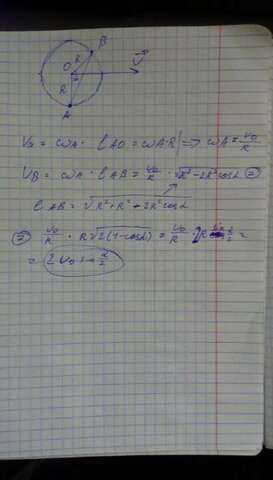 B
O R α V
R
A
V₀ = ωA · lAO = ωA·R | => ωA = V₀/R
VB = ωA · lAB = V₀/R · √R²-2R²cosα =
lAB = √R²+R²-2R²cosα
= V₀/R · R√2(1-cosα) = V₀/R · 2R α/2 =
= 2 V₀ sin α/2